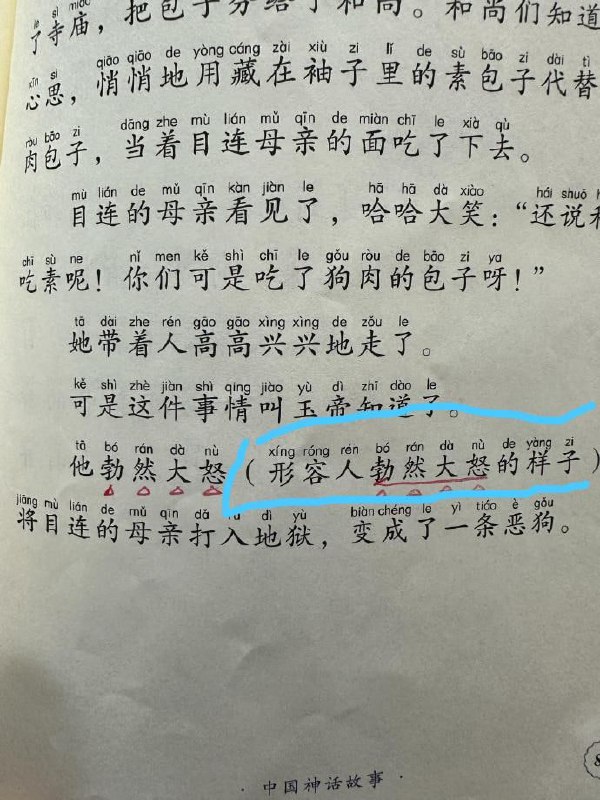 le sì miào
了寺庙，把包子分给了和尚。和尚们知道
xīn si qiāo qiāo de yòng cáng zài xiù zi lǐ de sù bāo zi dài tì
心思，悄悄地用藏在袖子里的素包子代替
ròu bāo zi dāng zhe mù lián mǔ qīn de miàn chī le xià qù
肉包子，当着目连母亲的面吃了下去。
mù lián de mǔ qīn kàn jiàn le hā hā dà xiào hái shuō
目连的母亲看见了，哈哈大笑：“还说
chī sù ne nǐ men kě shì chī le gǒu ròu de bāo zi ya
吃素呢！你们可是吃了狗肉的包子呀！”
tā dài zhe rén gāo gāo xìng xìng de zǒu le
她带着人高高兴兴地走了。
kě shì zhè jiàn shì qing jiào yù dì zhī dào le
可是这件事情叫玉帝知道了。
tā bó rán dà nù xíng róng rén bó rán dà nù de yàng zi
他勃然大怒（形容人勃然大怒的样子）
jiāng mù lián de mǔ qīn dǎ rù dì yù biàn chéng le yì tiáo è gǒu
将目连的母亲打入地狱，变成了一条恶狗。
8
·中国神话故事·